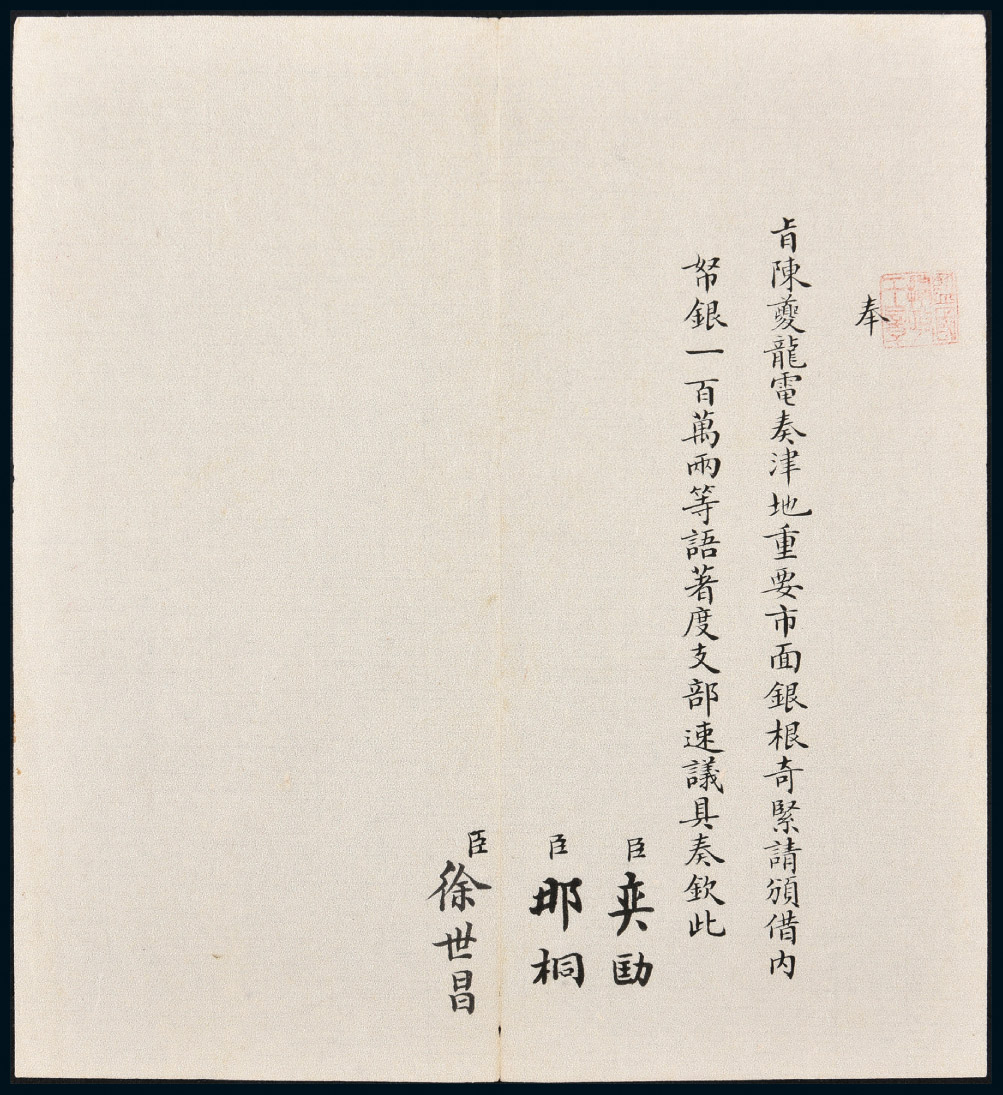 奉
旨陳夔龍電奏津地重要市面銀根奇緊請頒借内
帑銀一百萬兩等語著度支部速議具奏欽此
臣奕劻
臣那桐
臣徐世昌